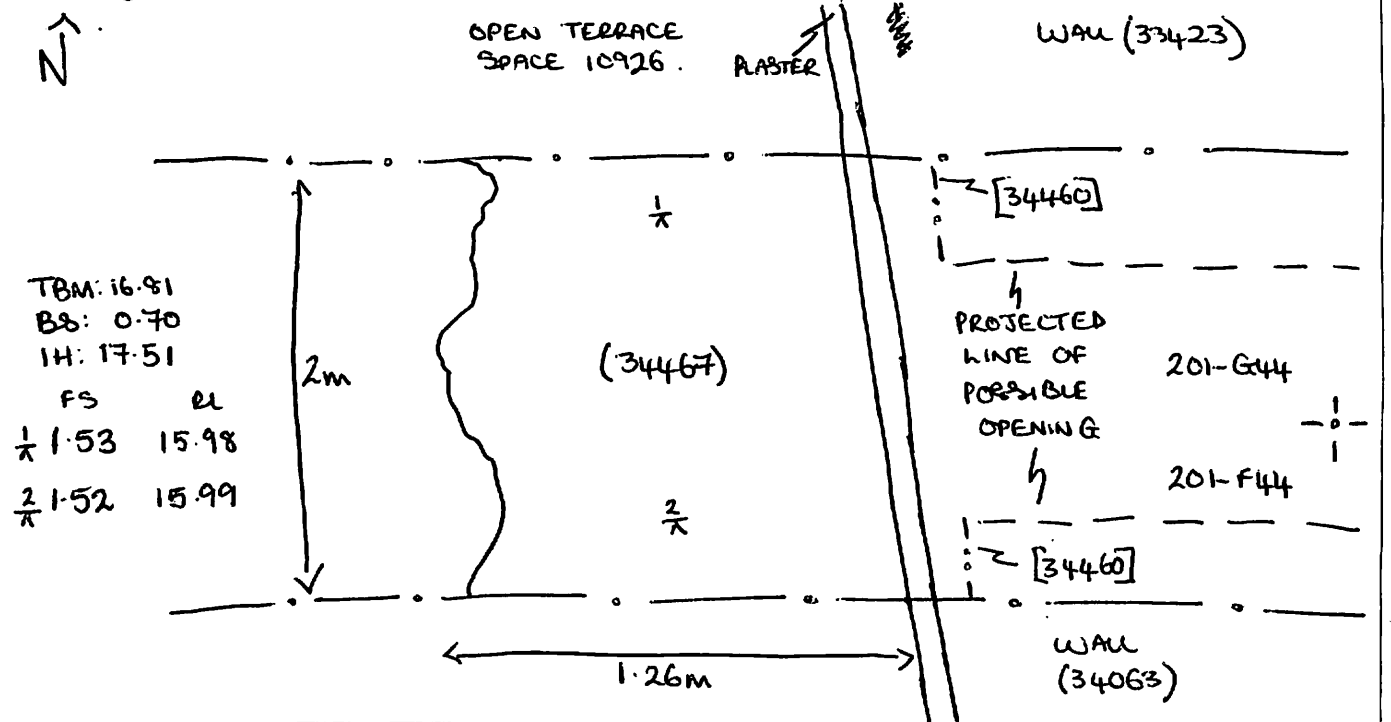 N
OPEN TERRACE
SPACE 10926.
PLASTER
WALL (33423)
[34460]
1
TBM: 16.81
BS: 0.70
IH: 17.51
FS RL
1 1.53 15.98
2 1.52 15.99
2m
(34467)
PROJECTED
LINE OF
POSSIBLE
OPENING
201-G44
201-F44
2
[34460]
1.26m
WALL
(34063)